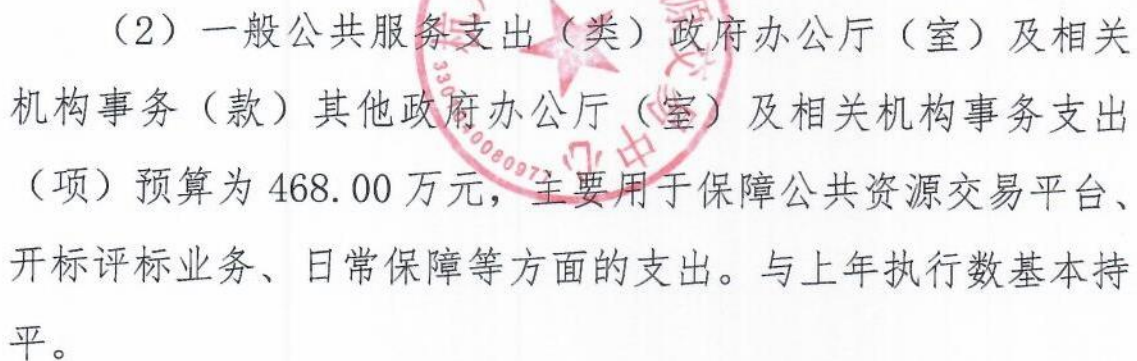 （2）一般公共服务支出（类）政府办公厅（室）及相关
机构事务（款）其他政府办公厅（室）及相关机构事务支出
（项）预算为 468.00 万元，主要用于保障公共资源交易平台、
开标评标业务、日常保障等方面的支出。与上年执行数基本持
平。
源交易中心